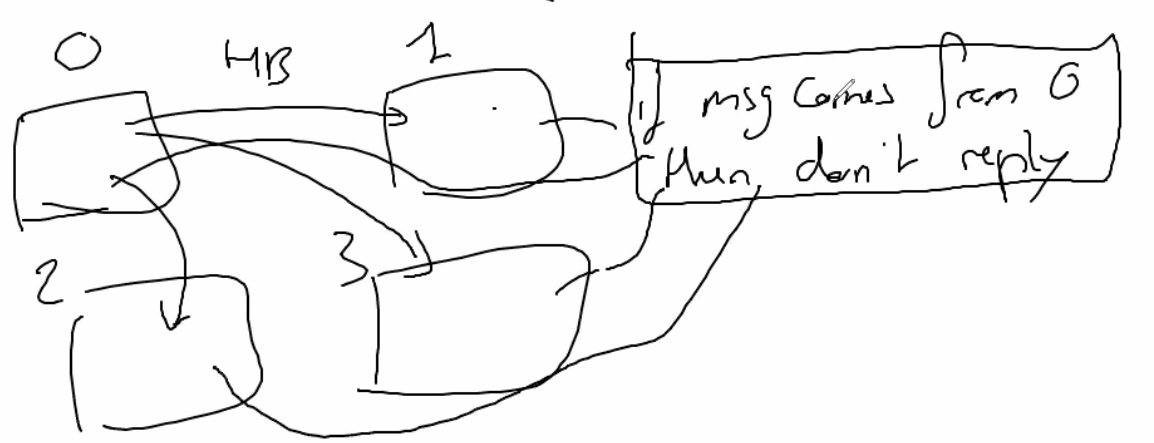 0 HB 1
If msg comes from 0
then don't reply
2 3